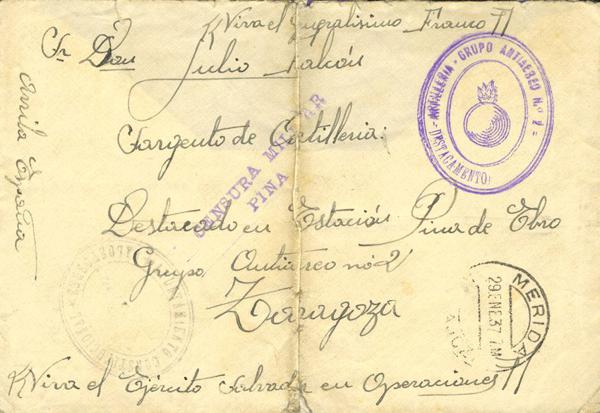 ¡¡Viva el Generalísimo Franco!!
Sr Don
Julio Falcón
Sargento de Artilleria:
Destacado en Estación Pina de Ebro
Grupo Antiaereo nº 2
Zaragoza
¡¡Viva el Ejército Salvador en Operaciones!!
Arriba España
CENSURA MILITAR
PINA
ARTILLERIA - GRUPO ANTIAEREO Nº 2 -
DESTACAMENTO
MERIDA
29 ENE 37 7.M
AYUNTAMIENTO